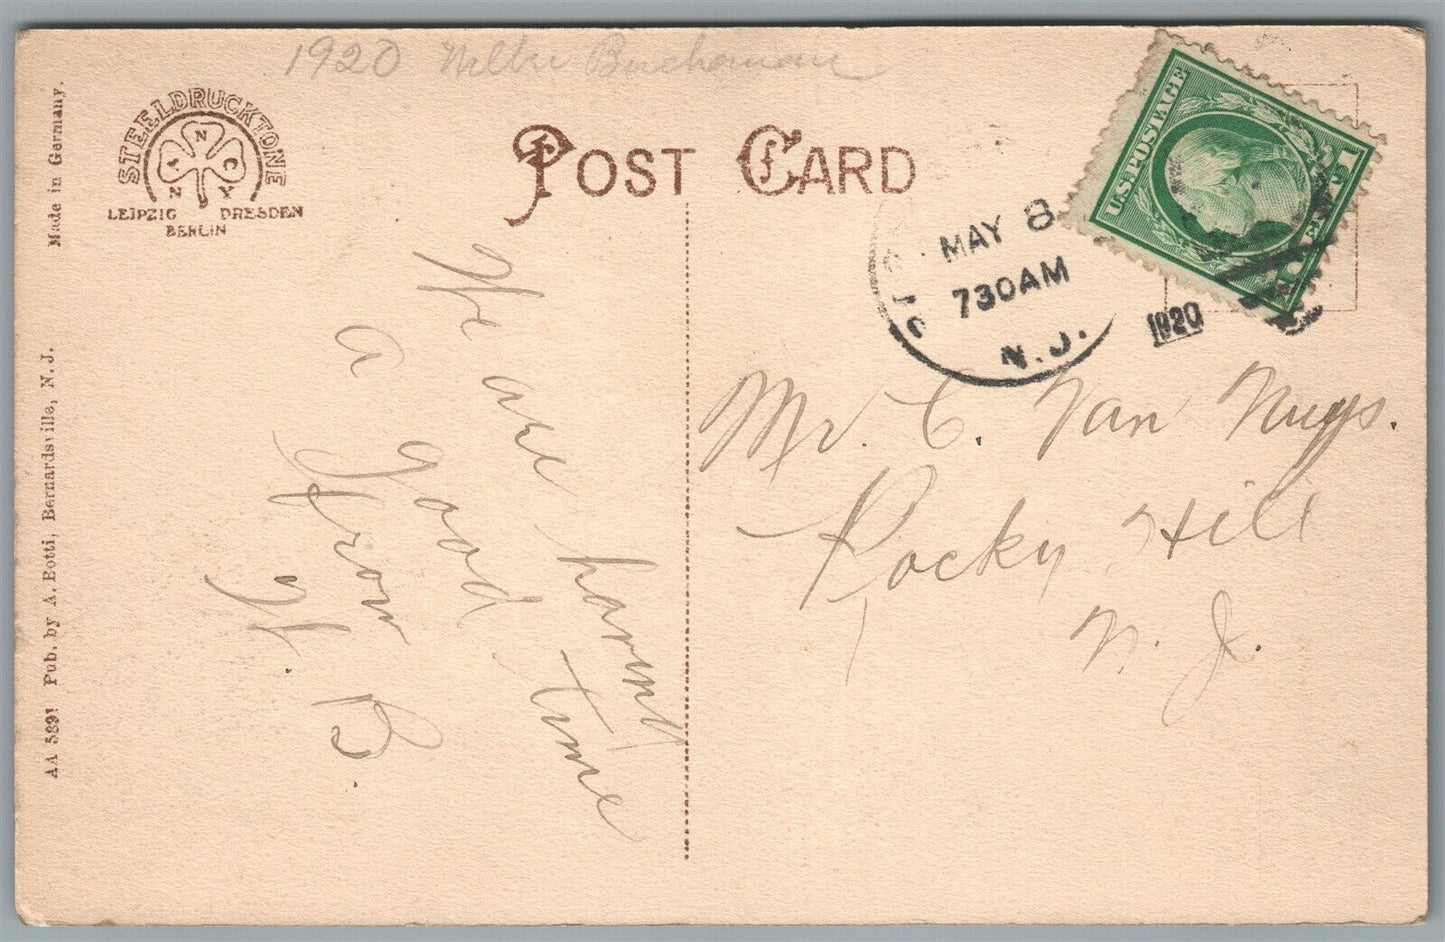 1920 Buchanan
STEELDRUCKTONE
N
A C
N Y
LEIPZIG DRESDEN
BERLIN
Made in Germany.
AA 5891 Pub. by A. Botti, Bernardsville, N. J.
POST CARD
U.S. POSTAGE
1
MAY 8
730AM
N.J.
1920
We are having
a good time
From
W. B.
Mr. C. Van Nuys.
Rocky Hill
N. J.